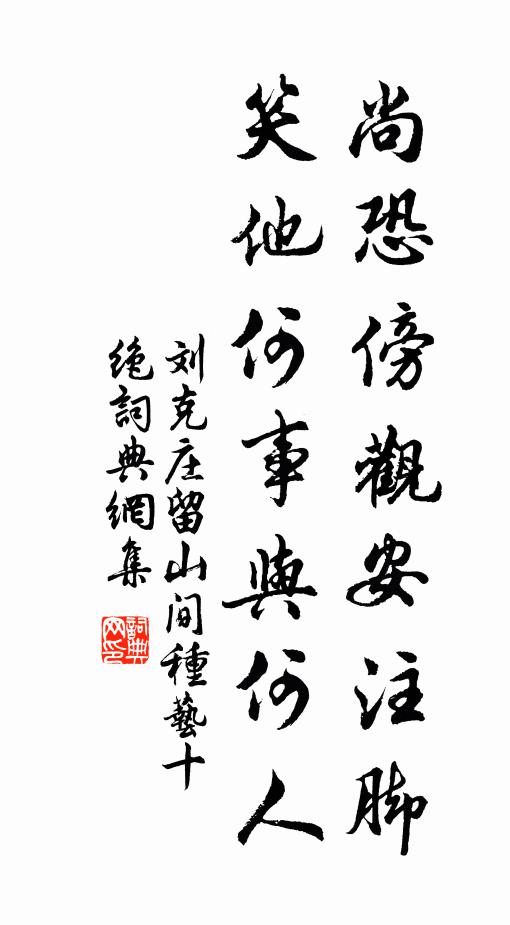 尚恐傍觀安注脚
笑他何事與何人
刘克庄留山间種藝十
绝詞典網集
詞典网印